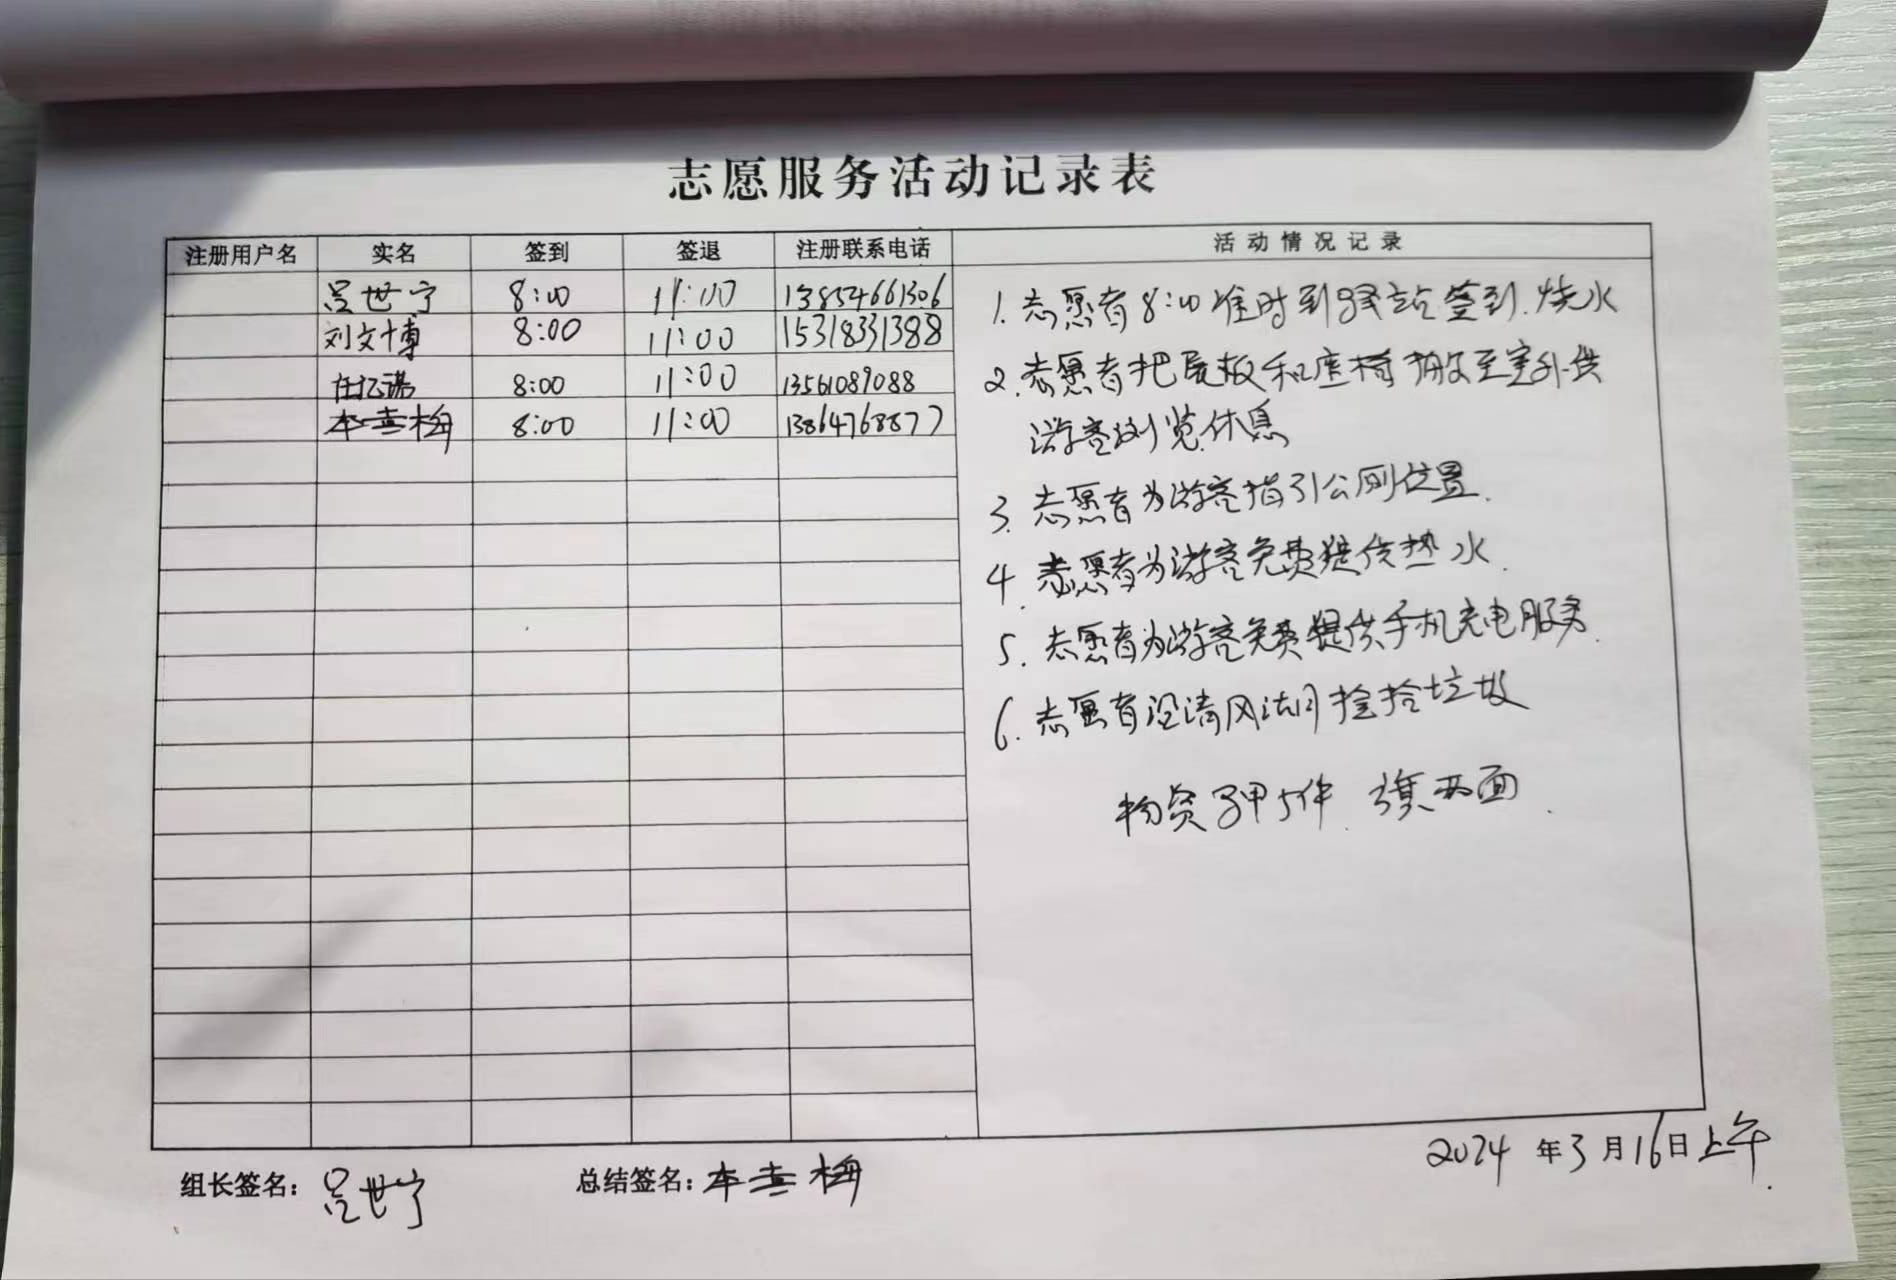 志愿服务活动记录表
注册用户名 实名 签到 签退 注册联系电话 活动情况记录
吕世宁 8:00 11:00 13854661306
刘文博 8:00 11:00 15318331388
任亿诺 8:00 11:00 13561089088
李喜梅 8:00 11:00 13864768877
1. 志愿者8:00准时到驿站签到.烧水
2. 志愿者把展板和座椅搬至室外供
游客浏览休息
3. 志愿者为游客指引公厕位置.
4. 志愿者为游客免费提供热水.
5. 志愿者为游客免费提供手机充电服务.
6. 志愿者沿清风湖捡拾垃圾
物资 马甲5件. 旗两面.
2024年3月16日上午.
组长签名: 吕世宁 总结签名: 李喜梅